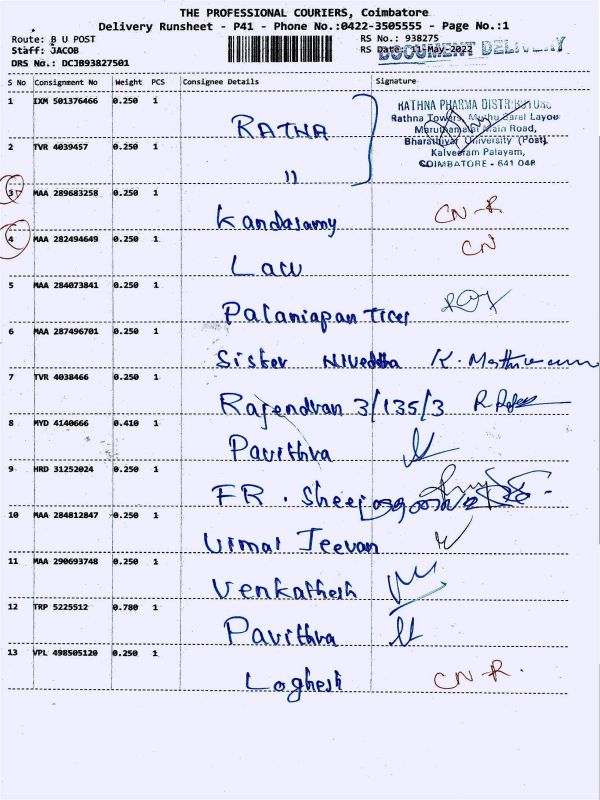 THE PROFESSIONAL COURIERS, Coimbatore
Delivery Runsheet - P41 - Phone No.:0422-3505555 - Page No.:1
Route: B U POST
RS No.: 938275
Staff: JACOB
RS Date: 11-May-2022
DOCUMENT DELIVERY
DRS No.: DCJB93827501
S No Consignment No Weight PCS Consignee Details Signature
1 IXM 501376466 0.250 1
RATNA
RATHNA PHARMA DISTRIBUTORS
Rathna Towers, Muthu Saral Layou
Maruthamalai Main Road,
Bharathiyar University (Post),
Kalveeram Palayam,
COIMBATORE - 641 046
2 TVR 4039457 0.250 1
"
3 MAA 289683258 0.250 1
Kandasamy CN-R
4 MAA 282494649 0.250 1
Law CN
5 MAA 284073841 0.250 1
Palaniapan Tices
6 MAA 287496701 0.250 1
Sister Nivedtha K. Mathivanan
7 TVR 4038466 0.250 1
Rajendran 3/135/3
8 MYD 4140666 0.410 1
Pavithra
9 HRD 31252024 0.250 1
FR. Sheejo
10 MAA 284812847 0.250 1
Vimal Jeevan
11 MAA 290693748 0.250 1
Venkathesh
12 TRP 5225512 0.780 1
Pavithra
13 VPL 498505120 0.250 1
Loghesh CN-R.